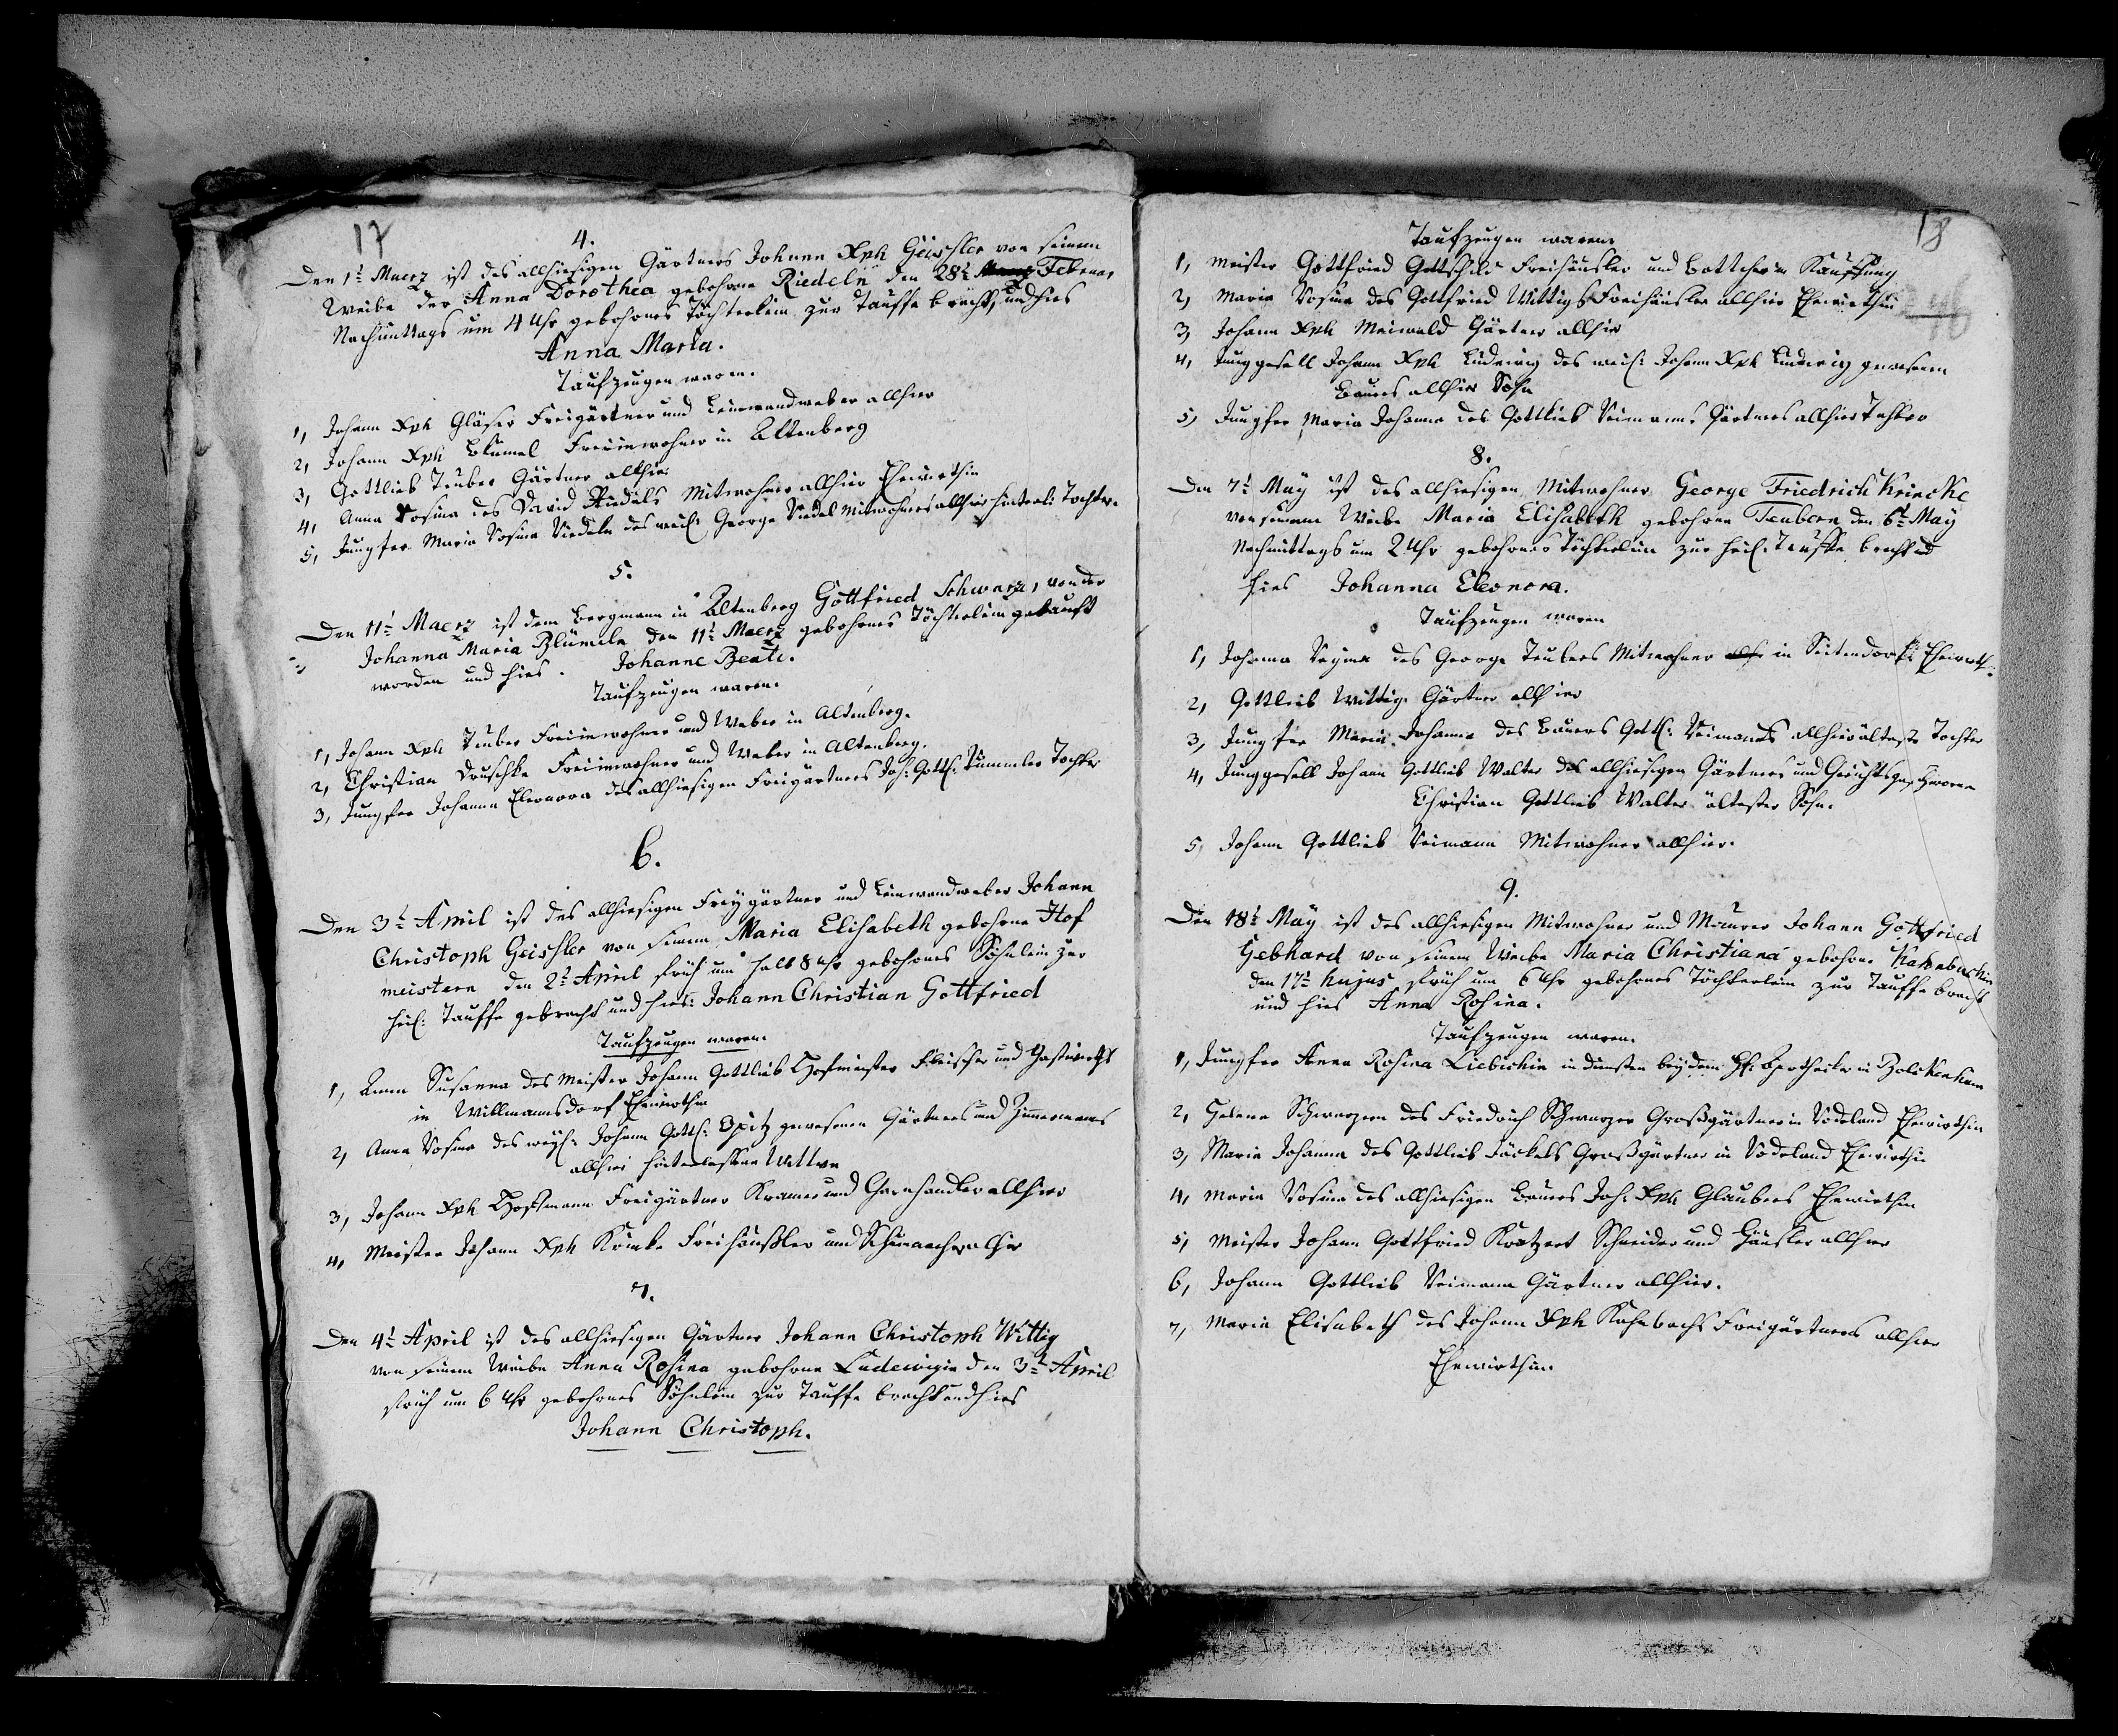 17
4.
Den 1t Maerz ist des allhiesigen Gärtners Johann Xph Geissler von seinem
Weibe der Anna Dorothea gebohrne Riedeln den 28t Februar
Nachmittags um 4 Uhr gebohrnes Töchterlein zur Tauffe bracht, und hies
Anna Maria.
Taufzeugen waren.
1, Johann Xph Gläser Freigärtner und Leinwandweber allhier
2, Johann Xph Blümel Freiinwohner in Altenberg
3, Gottlieb Teuber Gärtner allhier
4, Anna Rosina des David Riedels Mitwohner allhier Ehewirthin
5, Jungfer Maria Rosina Riedeln des weil: George Riedel Mitwohners allhier hinterl: Tochter.
5.
Den 11t Maerz ist dem Bergmann in Altenberg Gottfried Schwarz, von der
Johanna Maria Blümeln den 11t Maerz gebohrnes Töchterlein getauft
worden und hies. Johanne Beate.
Taufzeugen waren.
1, Johann Xph Teuber Freiinwohner und Weber in Altenberg.
2, Christian Druschke Freiinwohner und Weber in Altenberg.
3, Jungfer Johanna Eleonora des allhiesigen Freigärtners Joh: Gottl: Tummler Tochter
6.
Den 3t April ist des allhiesigen Freygärtner und Leinwandweber Johann
Christoph Geissler von seinem Maria Elisabeth gebohrne Hof
meistern den 2t April früh um halb 8 Uhr gebohrnes Söhnlein zur
heil: Tauffe gebracht und hies: Johann Christian Gottfried
Taufzeugen waren.
1, Anna Susanna des Meister Johann Gottlieb Hofmeister Fleischer und Gastwirths
in Willmannsdorf Ehewirthin
2, Anna Rosina des weyl: Johann Gottl: Opitz gewesenen Gärtners und Zimmermanns
allhier hinterlassene Wittwe
3, Johann Xph Hoffmann Freigärtner Kramer und Garnhändler allhier
4, Meister Johann Xph Krinke Freihäußler und Schumacher allhier
7.
Den 4t April ist des allhiesigen Gärtner Johann Christoph Wittig
von seinem Weibe Anna Rosina gebohrne Ludewigin den 3t April
früh um 6 Uhr gebohrnes Söhnlein zur Tauffe bracht und hies
Johann Christoph.
18
Taufzeugen waren
1, Meister Gottfried Gottschild Freihäusler und Böttcher in Kauffung
2, Maria Rosina des Gottfried Wittigs Freihäusler allhier Ehewirthin
3, Johann Xph Meiwald Gärtner allhier
4, Junggesell Johann Xph Ludewig des weil: Johann Xph Ludewig gewesenen
Bauers allhier Sohn
5, Jungfer Maria Johanna des Gottlieb Reimanns Gärtners allhier Tochter
8.
Den 7t May ist des allhiesigen Mitwohner George Friedrich Krincke
von seinem Weibe Maria Elisabeth gebohrne Teubern den 6t May
Nachmittags um 2 Uhr gebohrnes Töchterlein zur heil: Tauffe bracht und
hies Johanna Eleonora.
Taufzeugen waren
1, Johanna Regina des George Teubers Mitwohner in Seitendorf Ehewirth:
2, Gottlieb Wittig Gärtner allhier
3, Jungfer Maria Johanna des Bauers Gottl: Reimanns allhier älteste Tochter
4, Junggesell Johann Gottlieb Walter des allhiesigen Gärtners und Gerichtsgeschworen
Christian Gottlieb Walter ältester Sohn.
5, Johann Gottlieb Reimann Mitwohner allhier.
9.
Den 18t May ist des allhiesigen Mitwohner und Maurer Johann Gottfried
Gebhard von seinem Weibe Maria Christiana gebohrne
den 17t hujus früh um 6 Uhr gebohrnes Töchterlein zur Tauffe bracht
und hies Anna Rosina.
Taufzeugen waren.
1, Jungfer Anna Rosina Liebichin in diensten bey dem H: Apothecker in Bolckenhain
2, Helena Schwarzern des Friedrich Schwarzer Großgärtner in Röveland Ehewirthin
3, Maria Johanna des Gottlieb Jäckels Großgärtner in Röveland Ehewirthin
4, Maria Rosina des allhiesigen Bauers Joh: Xph Glaubers Ehewirthin
5, Meister Johann Gottfried Kratzert Schneider und Häusler allhier
6, Johann Gottlieb Reimann Gärtner allhier.
7, Maria Elisabeth des Johann Xph Kahnbachs Freigärtners allhier
Ehewirthin.